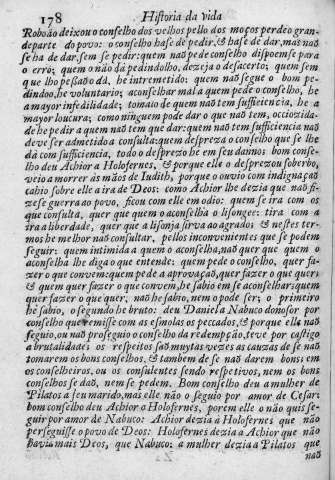 178 Historia da vida
Roboão deixou o conselho dos velhos pello dos moços perdeo gran-
departe do povo: o conselho hase de pedir, & hase de dar, mas naõ
se ha de dar, sem se pedir: quem naõ pede conselho dispoemse para
o erro; quem o naõ dá pedindolho, dezeja o desacerto; quem sem
que lho pessaõ o dá, he intremetido: quem naõ segue o bom pe-
dindoo, he voluntario; aconselhar mal a quem pede o conselho, he
a mayor infedilidade; tomalo de quem naõ tem sufficiencia, he a
mayor loucura; como ninguem pode dar o que naõ tem, occiozida-
de he pedir a quem naõ tem que dar: quem naõ tem sufficiencia naõ
deve ser admetido a consulta: quem despreza o conselho que se lhe
dá com sufficiencia, todo o desprezo he em seu danno: bom conse-
lho deu Achior a Holofernes, & porque elle o desprezou soberbo,
veio a morrer ás mãos de Iudith, porque o ouvio com indignaçaõ
cahio sobre elle a ira de Deos: como Achior lhe dezia que naõ fi-
zese guerra ao povo, ficou com elle em odio: quem se ira com os
que consulta, quer que quem o aconselha o lisonger: tira com a
ira a liberdade, quer que a lisonja sirva ao agrado: & nestes ter-
mos he melhor naõ consultar, pellos inconvenientes que se podem
seguir: quem intimida a quem o aconselha, naõ quer que quem o
aconselha lhe diga o que entende: quem pede o conselho, quer fa-
zer o que convem: quem pede a aprovaçaõ, quer fazer o que quer:
& quem quer fazer o que convem, he sabio em se aconselhar: quem
quer fazer o que quer, naõ he sabio, nem o pode ser; o primeiro
he sabio, o segundo he bruto: deu Daniel a Nabuco donosor por
conselho que remisse com as esmolas os peccados, & porque elle naõ
seguio, ou naõ proseguio o conselho da redempçaõ, teve por castigo
a brutalidade: os respeitos saõ muytas vezes as cauzas de se naõ
tomarem os bons conselhos, & tambem de se naõ darem bons: em
os conselheiros, ou os consulentes sendo respetivos, nem os bons
conselhos se daõ, nem se pedem. Bom conselho deu a mulher de
Pilatos a seu marido, mas elle não o seguio por amor de Cesar:
bom conselho deu Achior a Holofernes, porem elle o não quis se-
guir por amor de Nabuco: Achior dezia á Holofernes que não
perseguisse o povo de Deos: Holofernes dezia a Achior que não
havia mais Deos, que Nabuco: a mulher dezia a Pilatos que
naõ